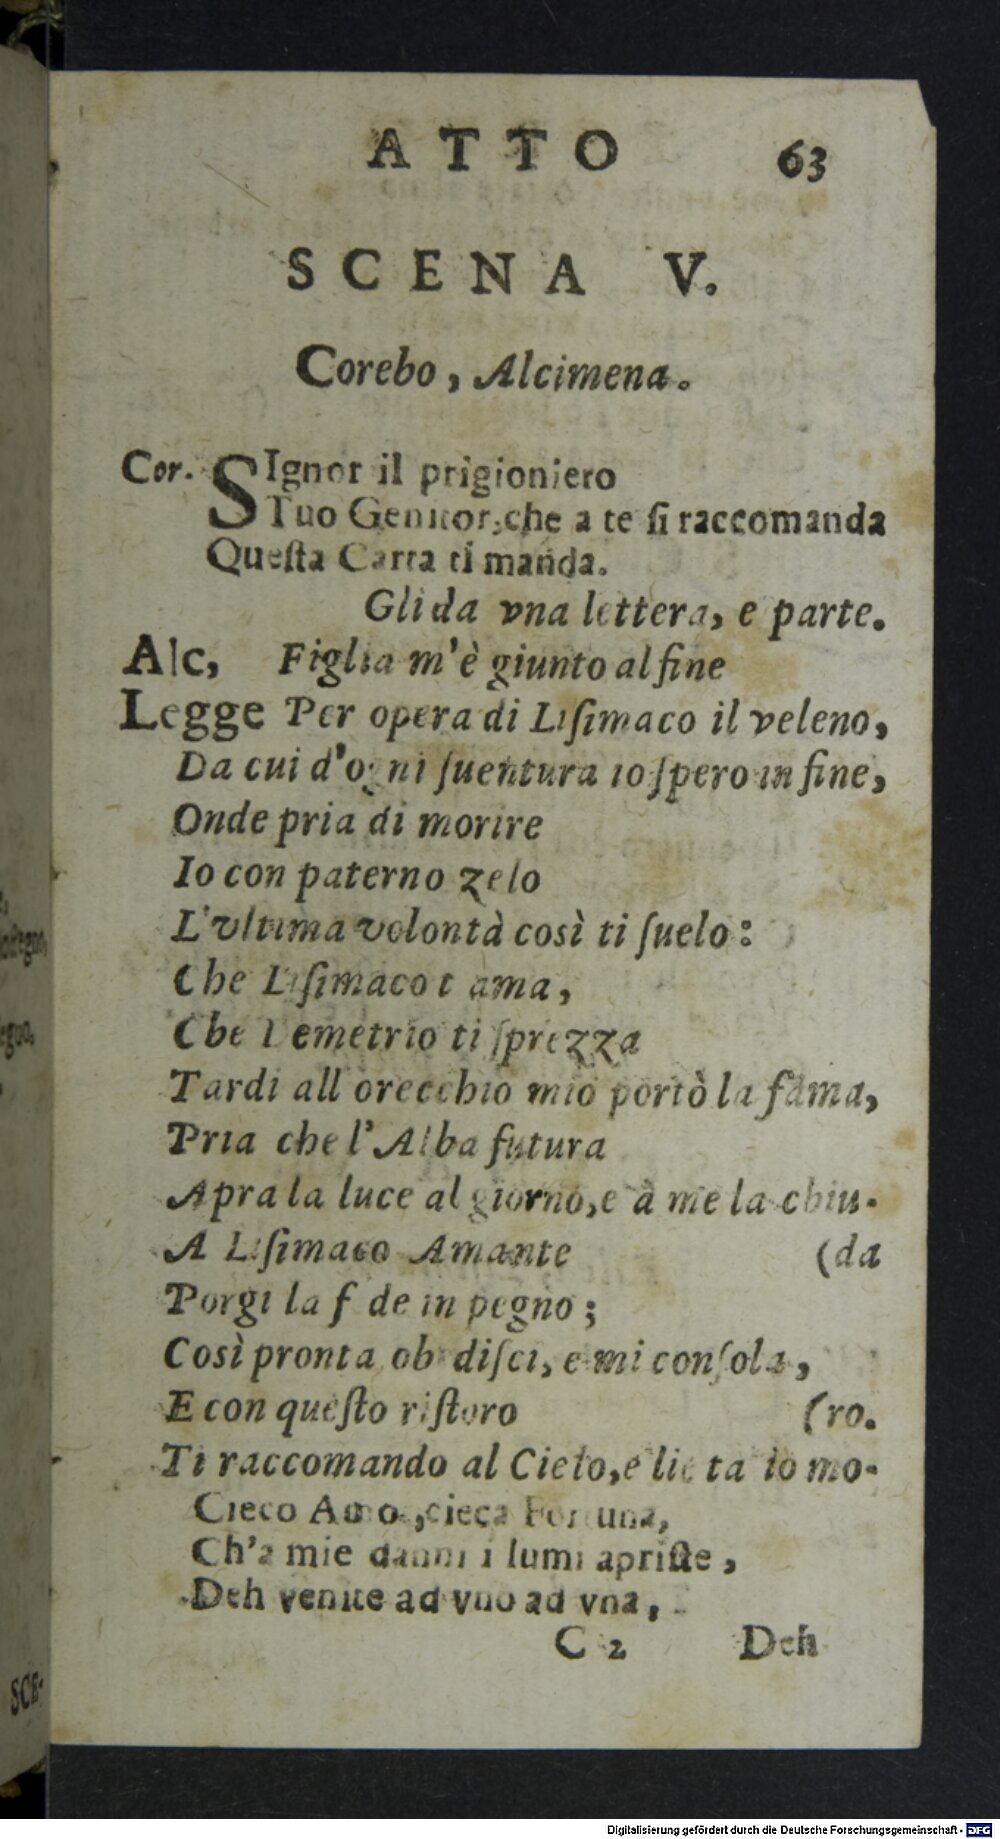 ATTO 63
SCENA V.
Corebo, Alcimena.
Cor. SIgnor il prigioniero
Tuo Genitor, che a te ſi raccomanda
Queſta Carta ti manda.
Gli da vna lettera, e parte.
Alc, Figlia m'è giunto al fine
Legge Per opera di Liſimaco il veleno,
Da cui d'ogni ſuentura io ſpero in fine,
Onde pria di morire
Io con paterno zelo
L'vltima volontà così ti ſuelo:
Che Liſimaco t ama,
Che Demetrio ti ſprezza
Tardi all orecchio mio portò la fama,
Pria che l'Alba futura
Apra la luce al giorno, e à me la chiu-
A Liſimaco Amante (da
Porgi la f de in pegno;
Così pronta ob diſci, e mi conſola,
E con queſto riſtoro (ro.
Ti raccomando al Cielo, e lieta io mo-
Cieco Amo, cieca Fortuna,
Ch'a mie danni i lumi apriſte,
Deh venite ad vno ad vna,
C 2 Deh
ſoſtegno,
egno.
SCE-
Digitalisierung gefördert durch die Deutsche Forschungsgemeinschaft - DFG